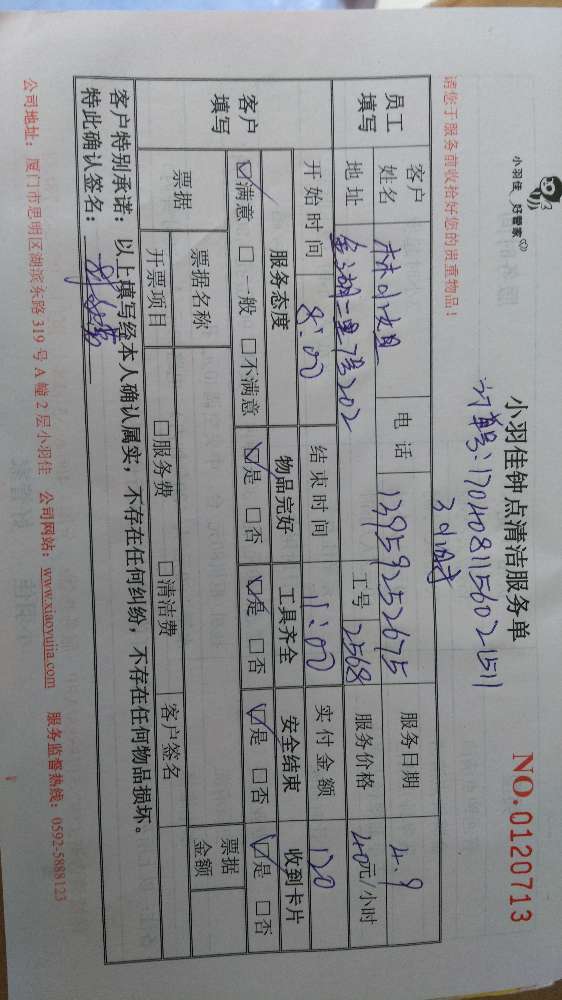 小羽佳 好管家
小羽佳钟点清洁服务单
NO.0120713
订单号:1704081156021511
请您于服务前收拾好您的贵重物品!
3小时
员工填写 客户姓名 林小姐 电话 13959252675 服务日期 4.9
地址 金湖一里 202 工号 2568 服务价格 40元/小时
开始时间 8:00 结束时间 11:00 实付金额 120
客户填写 服务态度 物品完好 工具齐全 安全结束 收到卡片
☑满意 □一般 □不满意 ☑是 □否 ☑是 □否 ☑是 □否 ☑是 □否
票据 票据名称 票据金额
开票项目 □服务费 □清洁费 客户签名
客户特别承诺:以上填写经本人确认属实,不存在任何纠纷,不存在任何物品损坏。
特此确认签名:
公司地址:厦门市思明区湖滨东路319号A幢2层小羽佳 公司网站:www.xiaoyujia.com 服务监督热线:0592-5888123